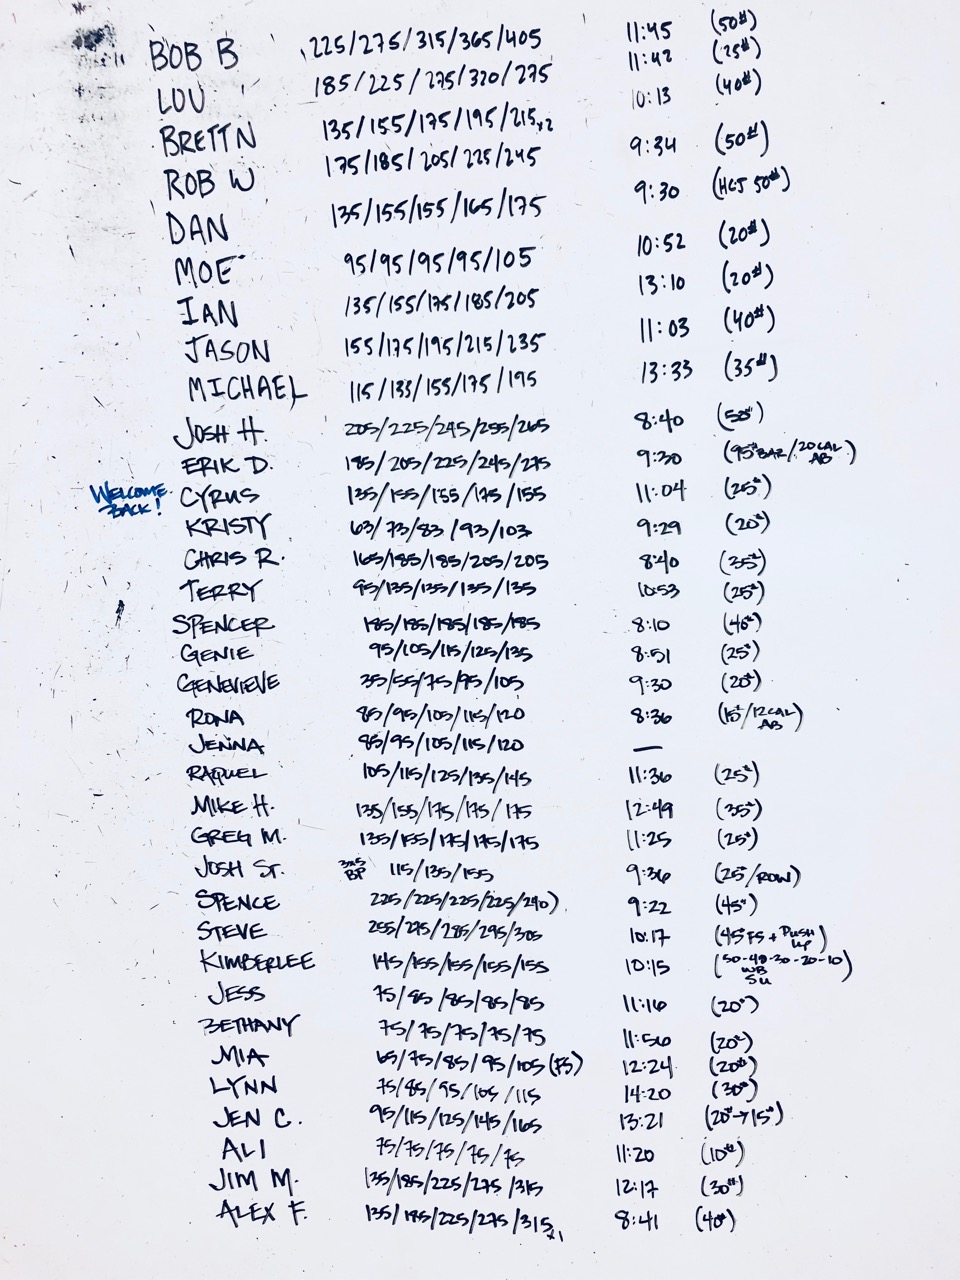 BOB B 225/275/315/365/405 11:45 (50#)
LOU 185/225/275/320/275 11:42 (25#)
BRETT N 135/155/175/195/215 x2 10:13 (40#)
ROB W 175/185/205/225/245 9:34 (50#)
DAN 135/155/155/165/175 9:30 (HCJ 50#)
MOE 95/95/95/95/105 10:52 (20#)
IAN 135/155/175/185/205 13:10 (20#)
JASON 155/175/195/215/235 11:03 (40#)
MICHAEL 115/135/155/175/195 13:33 (35#)
JOSH H. 205/225/245/255/265 8:40 (50#)
ERIK D. 185/205/225/245/275 9:30 (95# BAR/20 CAL AB)
WELCOME BACK! CYRUS 135/155/155/175/155 11:04 (25#)
KRISTY 63/73/83/93/103 9:29 (20#)
CHRIS R. 165/185/185/205/205 8:40 (35#)
TERRY 95/135/135/135/135 10:53 (25#)
SPENCER 185/185/185/185/185 8:10 (40#)
GENIE 95/105/115/125/135 8:51 (25#)
GENEVIEVE 35/55/75/95/105 9:30 (20#)
RONA 85/95/105/115/120 8:36 (15#/12 CAL AB)
JENNA 85/95/105/115/120 —
RAQUEL 105/115/125/135/145 11:36 (25#)
MIKE H. 135/155/175/175/175 12:49 (35#)
GREG M. 135/155/175/175/175 11:25 (25#)
JOSH ST. 3x5 BP 115/135/155 9:36 (25#/ROW)
SPENCE 225/225/225/225/240) 9:22 (45#)
STEVE 255/275/285/295/305 10:17 (45# FS + PUSH UP)
KIMBERLEE 145/155/155/155/155 10:15 (50-40-30-20-10 WB SU)
JESS 75/85/85/85/85 11:16 (20#)
BETHANY 75/75/75/75/75 11:56 (20#)
MIA 65/75/85/95/105 (FS) 12:24 (20#)
LYNN 75/85/95/105/115 14:20 (30#)
JEN C. 95/115/125/145/165 13:21 (20#→15#)
ALI 75/75/75/75/75 11:20 (10#)
JIM M. 135/185/225/275/315 12:17 (30#)
ALEX F. 135/185/225/275/315 x1 8:41 (40#)